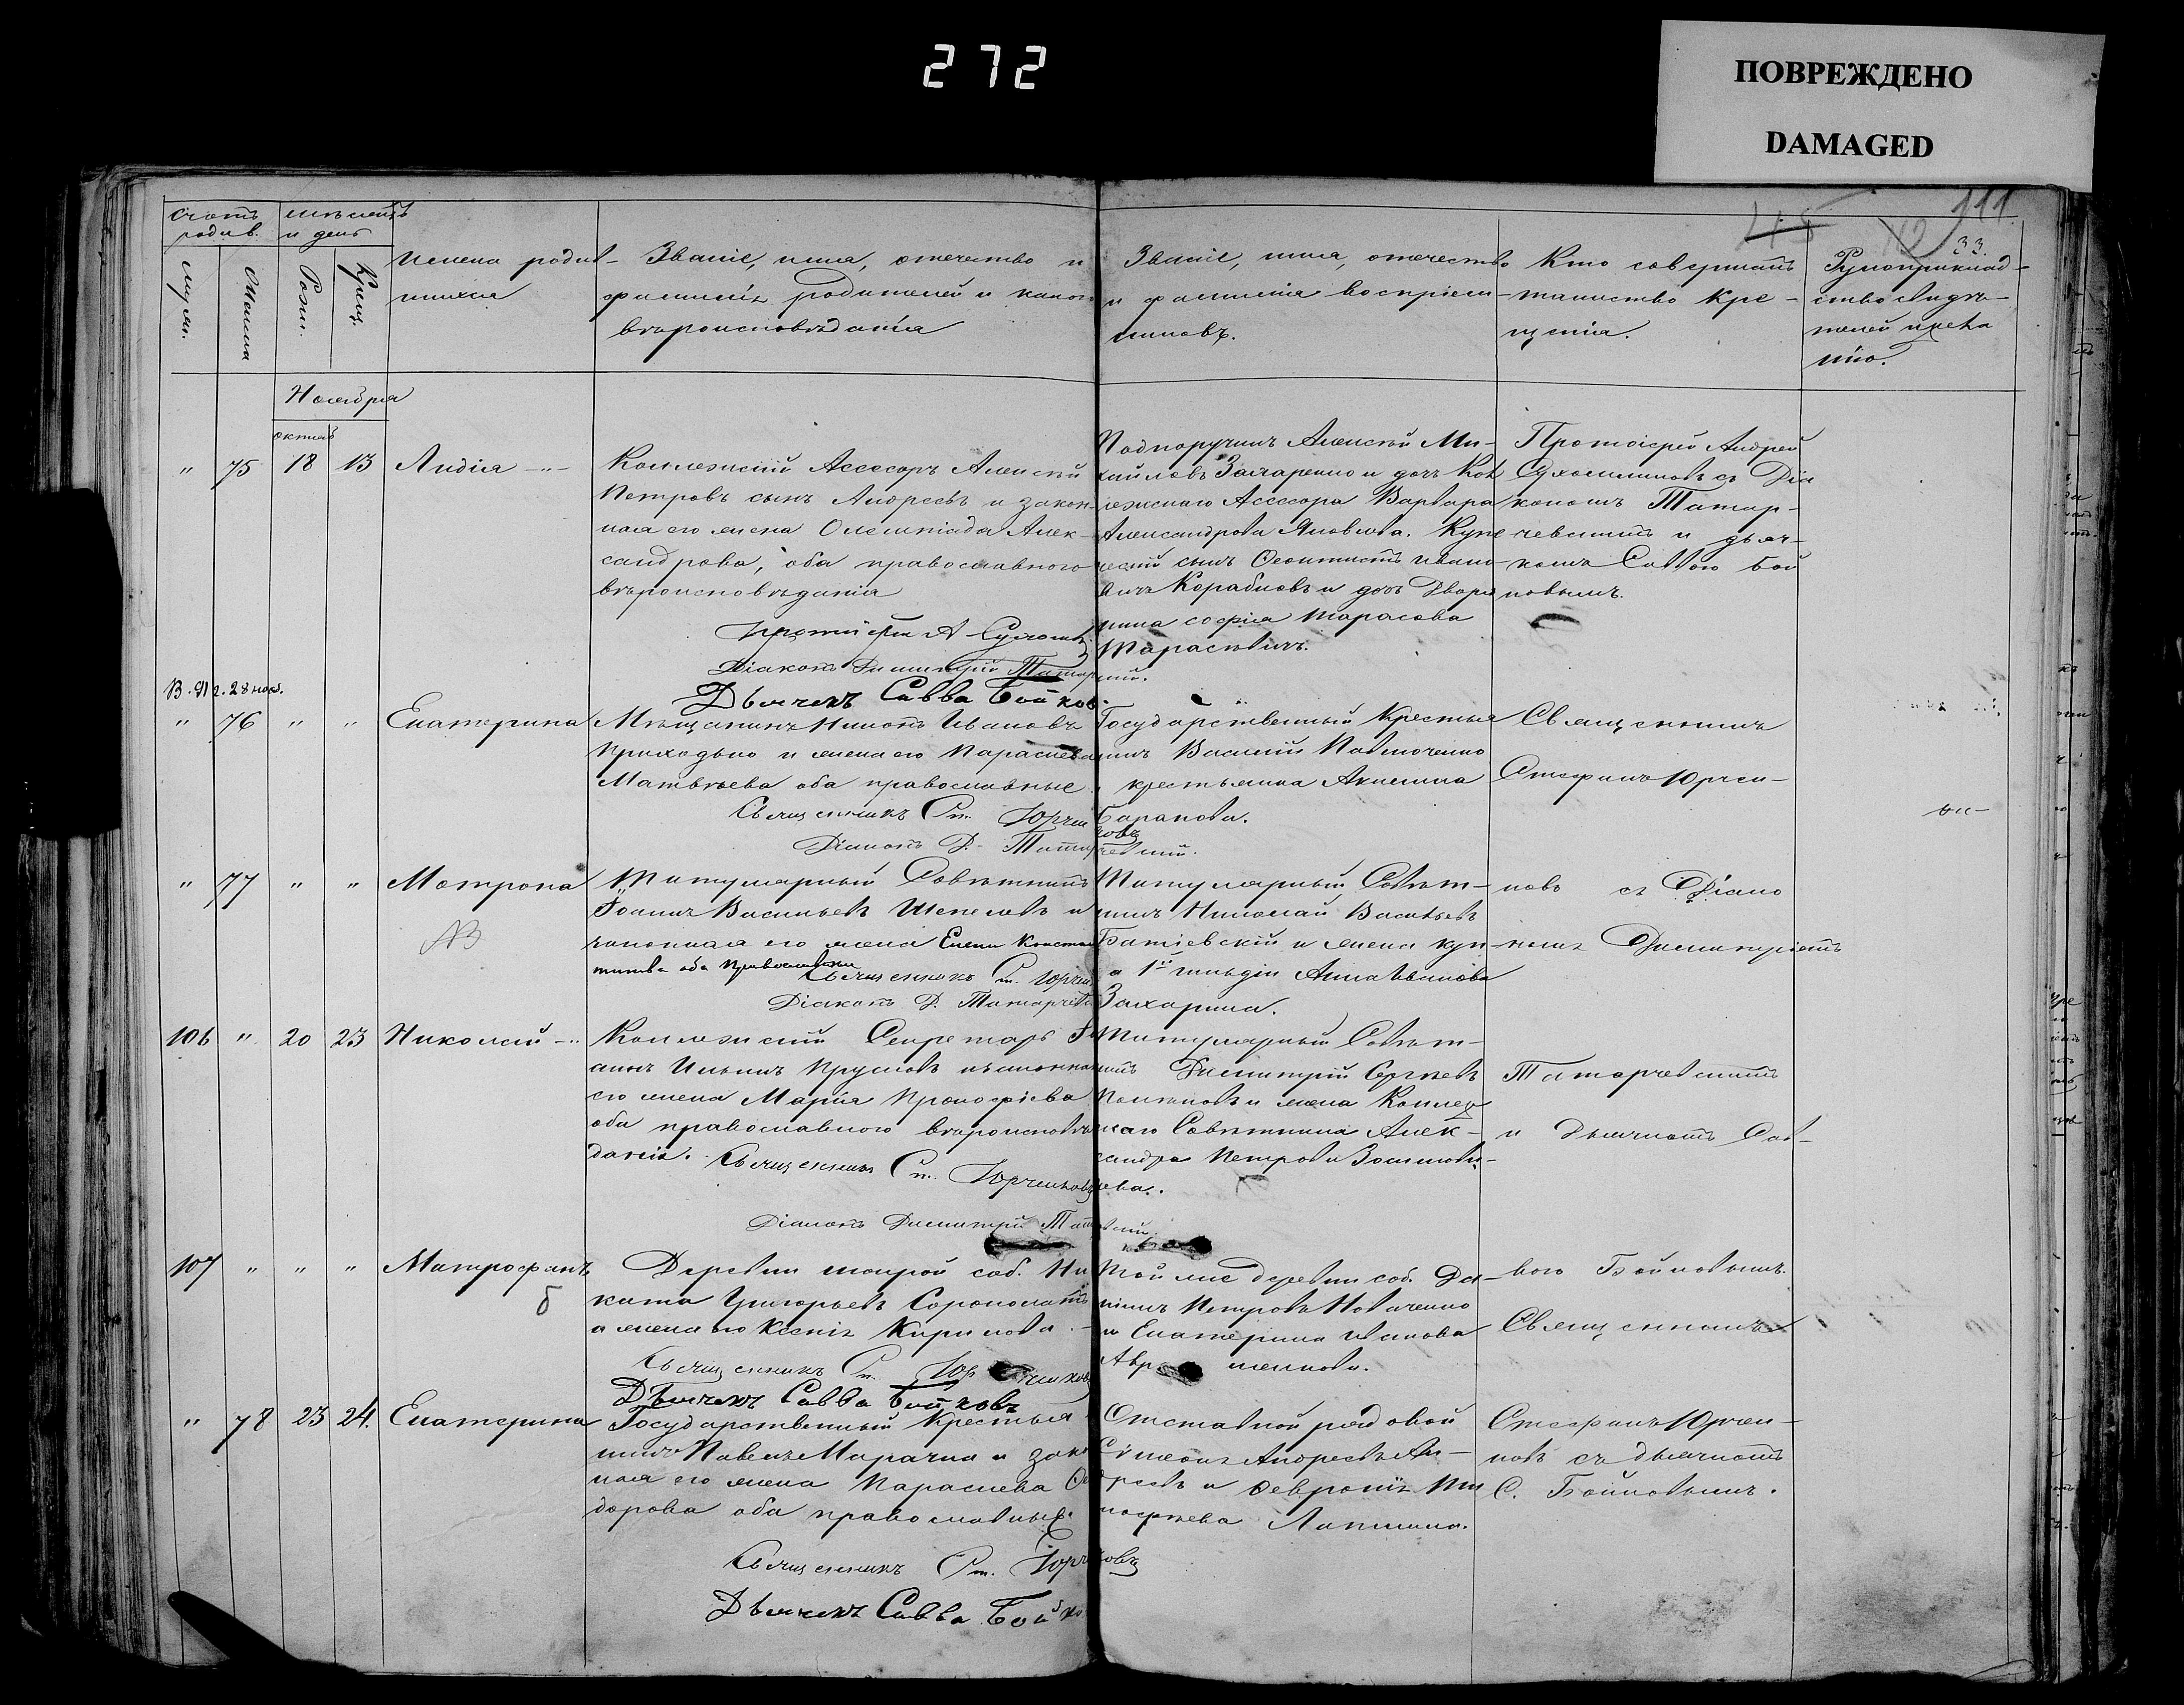 272
ПОВРЕЖДЕНО
DAMAGED
111
45
33
Счетъ родив.
мѣсяцъ и день
муж.
Женска
Рожд.
Крещ.
Имена родив-
шихся
Званіе, имя, отчество и
фамилія родителей и какого
вѣроисповѣданія
Званіе, имя, отчество
и фамилія воспріем-
никовъ.
Кто совершалъ
таинство кре-
щенія.
Рукоприклад-
ство свидѣ-
телей
Ноября
октяб
" 75 18 13 Лидія
Коллежскій Ассесоръ Алексѣй
Петровъ сынъ Андреевъ и закон-
ная его жена Олемпіада Алек-
сандрова, оба православного
вѣроисповѣданія
Протоіерей А
Діаконъ Димитрій
Дьячекъ Савва Бойков
Подпоручикъ Алексѣй Ми-
хайловъ Захаренко и дочь Кол
лежскаго Ассесора Варвара
Александрова Яковлева. Купе
ческій сынъ Ивано
вичъ Корабловъ и дочь Дворя
нина софія Тарасова
Тарасевичъ.
Протоіерей Андрей
съ Діа
кономъ Татар-
чевскимъ и дьяч-
комъ Саввою Бой
ковымъ.
28 нояб.
" 76 " " Екатерина
Мѣщанинъ Никонъ Ивановъ
Приходько и жена его Параскева
Матвѣева оба православные
Священникъ Ст. Юрчен
ковъ
Діаконъ Д. Татарчевскій.
Государственный Крестья
нинъ Василій Павлюченко
крестьянка Акилина
Баранова.
Священникъ
Стефанъ Юрчен-
" 77 " " Мотрона
АВ
Титулярный Совѣтникъ
Іоаннъ Васильевъ Шепелевъ и
законная его жена Елена Констан
тинова оба Православные
Священникъ Ст. Юрчен
Діаконъ Д. Татарчев
Титулярный Совѣт-
никъ Николай Васильевъ
Батіевскій и жена куп-
ца 1й гильдіи Анна Иванова
Захарина.
ковъ съ Діако
номъ Димитріемъ
106 " 20 23 Николай
Коллежскій Секретарь Ів
анъ Ильинъ Прусловъ и законная
его жена Марія Прокофіева
оба православного вѣроисповѣ
данія. Священникъ Ст. Юрченковъ
Діаконъ Димитрій
Титулярный Совѣт-
никъ Димитрій Сергѣевъ
и жена Коллеж
скаго Совѣтника Алек-
сандра Петрова
ева.
Татарчевскимъ
и Дьячкомъ Сав-
107 " " " Митрофанъ
б
Деревни соб. Ни
кита Григорьевъ
а жена его Ксенія Кирилова
Священникъ Ст. Юр ченковъ
Дьячекъ Савва Бойковъ
Той же деревни соб. Да-
ніилъ Петровъ Новаченко
и Екатерина Иванова
вою Бойковымъ.
Священникъ
" 78 23 24. Екатерина
Государственный Крестья
нинъ Павелъ и закон
ная его жена Параскева Фе
дорова оба православные.
Священникъ Ст. Юрченковъ
Дьячекъ Савва Бойко
Отставной рядовой
Симеонъ Андреевъ Ан-
дреевъ и Февронія Ти
мофѣева Лапшина.
Стефанъ Юрчен-
ковъ съ дьячкомъ
С. Бойковымъ.